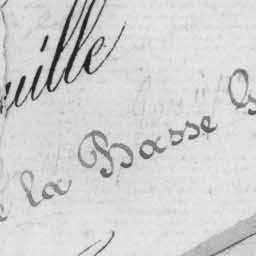 uille
la Basse